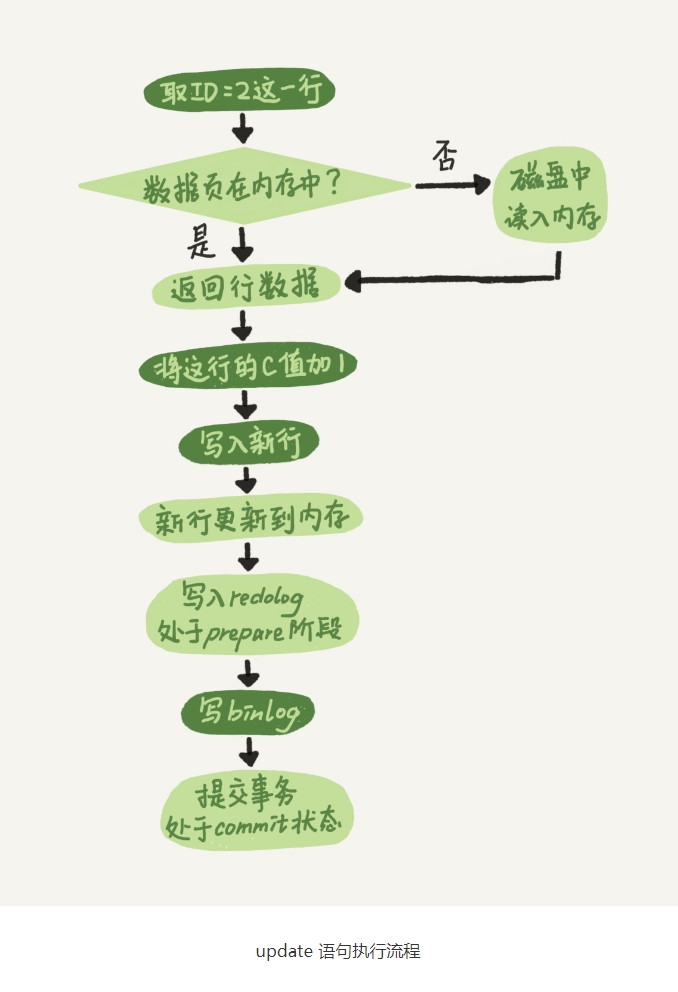 取ID=2这一行
数据页在内存中？
否
磁盘中
读入内存
是
返回行数据
将这行的C值加1
写入新行
新行更新到内存
写入redolog
处于prepare阶段
写binlog
提交事务
处于commit状态
update 语句执行流程